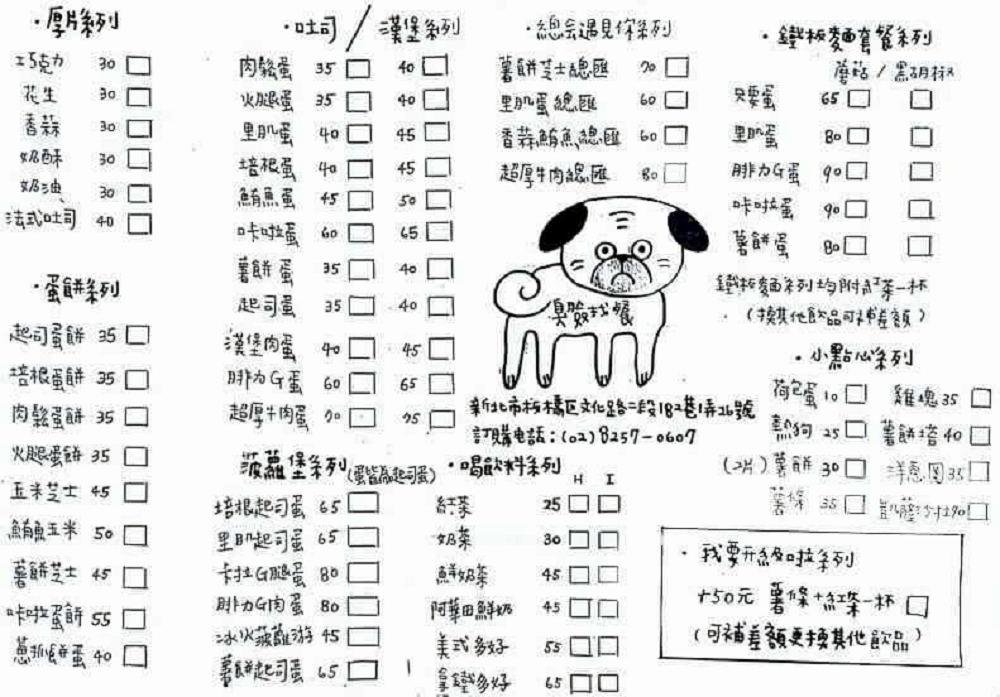 ·厚片系列
巧克力 30
花生 30
香蒜 30
奶酥 30
奶油 30
法式吐司 40
·蛋餅系列
起司蛋餅 35
培根蛋餅 35
肉鬆蛋餅 35
火腿蛋餅 35
玉米芝士 45
鮪魚玉米 50
薯餅芝士 45
咔啦蛋餅 55
蔥抓餅蛋 40
·吐司/漢堡系列
肉鬆蛋 35 40
火腿蛋 35 40
里肌蛋 40 45
培根蛋 40 45
鮪魚蛋 45 50
咔啦蛋 60 65
薯餅蛋 35 40
起司蛋 35 40
漢堡肉蛋 40 45
腓力G蛋 60 65
超厚牛肉蛋 70 75
菠蘿堡系列(蛋皆為起司蛋)
培根起司蛋 65
里肌起司蛋 65
卡拉G腿蛋 80
腓力G肉蛋 80
冰火菠蘿游 45
薯餅起司蛋 65
·總会遇見你系列
薯餅芝士總匯 70
里肌蛋總匯 60
香蒜鮪魚總匯 60
超厚牛肉總匯 80
臭臉找餐
新北市板橋區文化路二段182巷1弄26號
訂購電話:(02)8257-0607
·喝飲料系列
H I
紅茶 25
奶茶 30
鮮奶茶 45
阿華田鮮奶 45
美式多好 55
拿鐵多好 65
·鐵板麵套餐系列
蘑菇/黑胡椒
只要蛋 65
里肌蛋 80
腓力G蛋 90
咔啦蛋 90
薯餅蛋 80
鐵板麵系列均附紅茶一杯
(換其他飲品可補差額)
·小點心系列
荷包蛋 10 雞塊 35
熱狗 25 薯餅培 40
(2片)薯餅 30 洋蔥圈 35
薯條 35 90
·我要升級啦系列
+50元 薯條+紅茶一杯
(可補差額更換其他飲品)